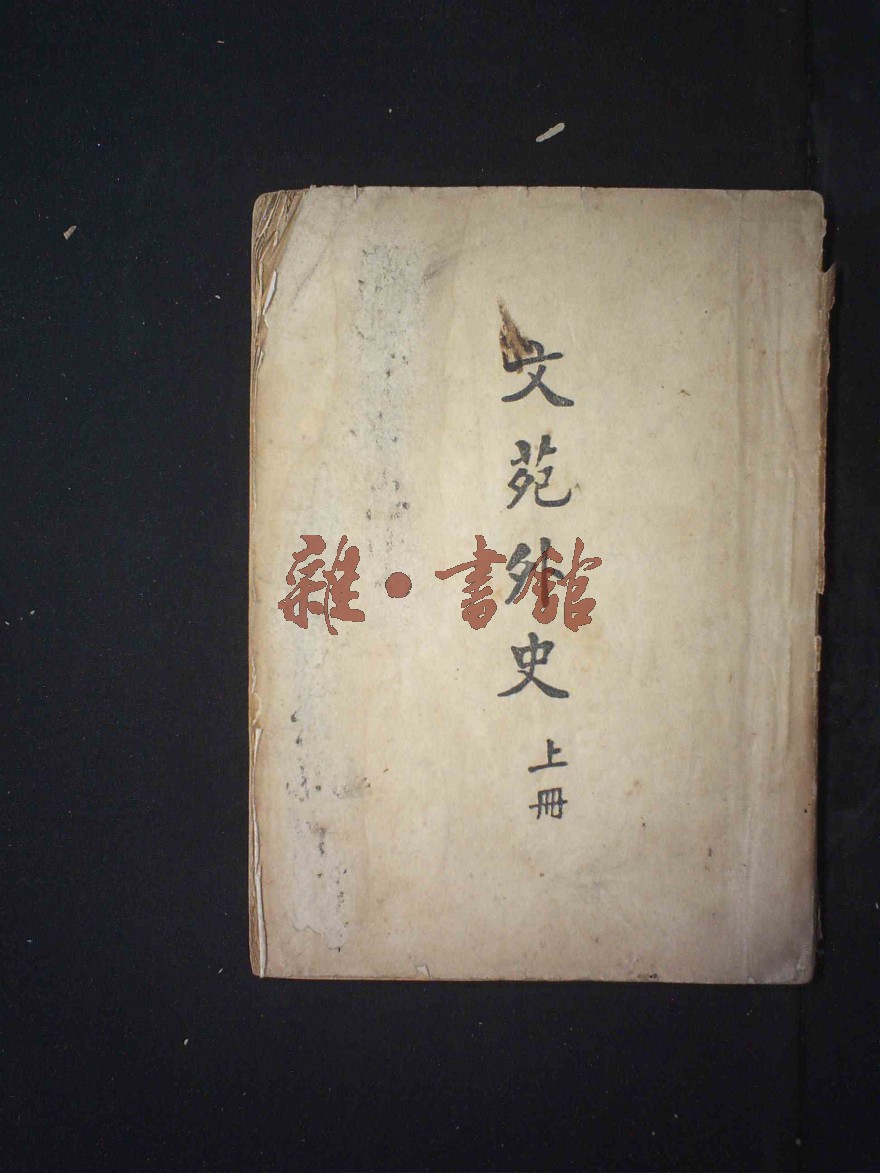 文苑外史
上冊
雜·書館